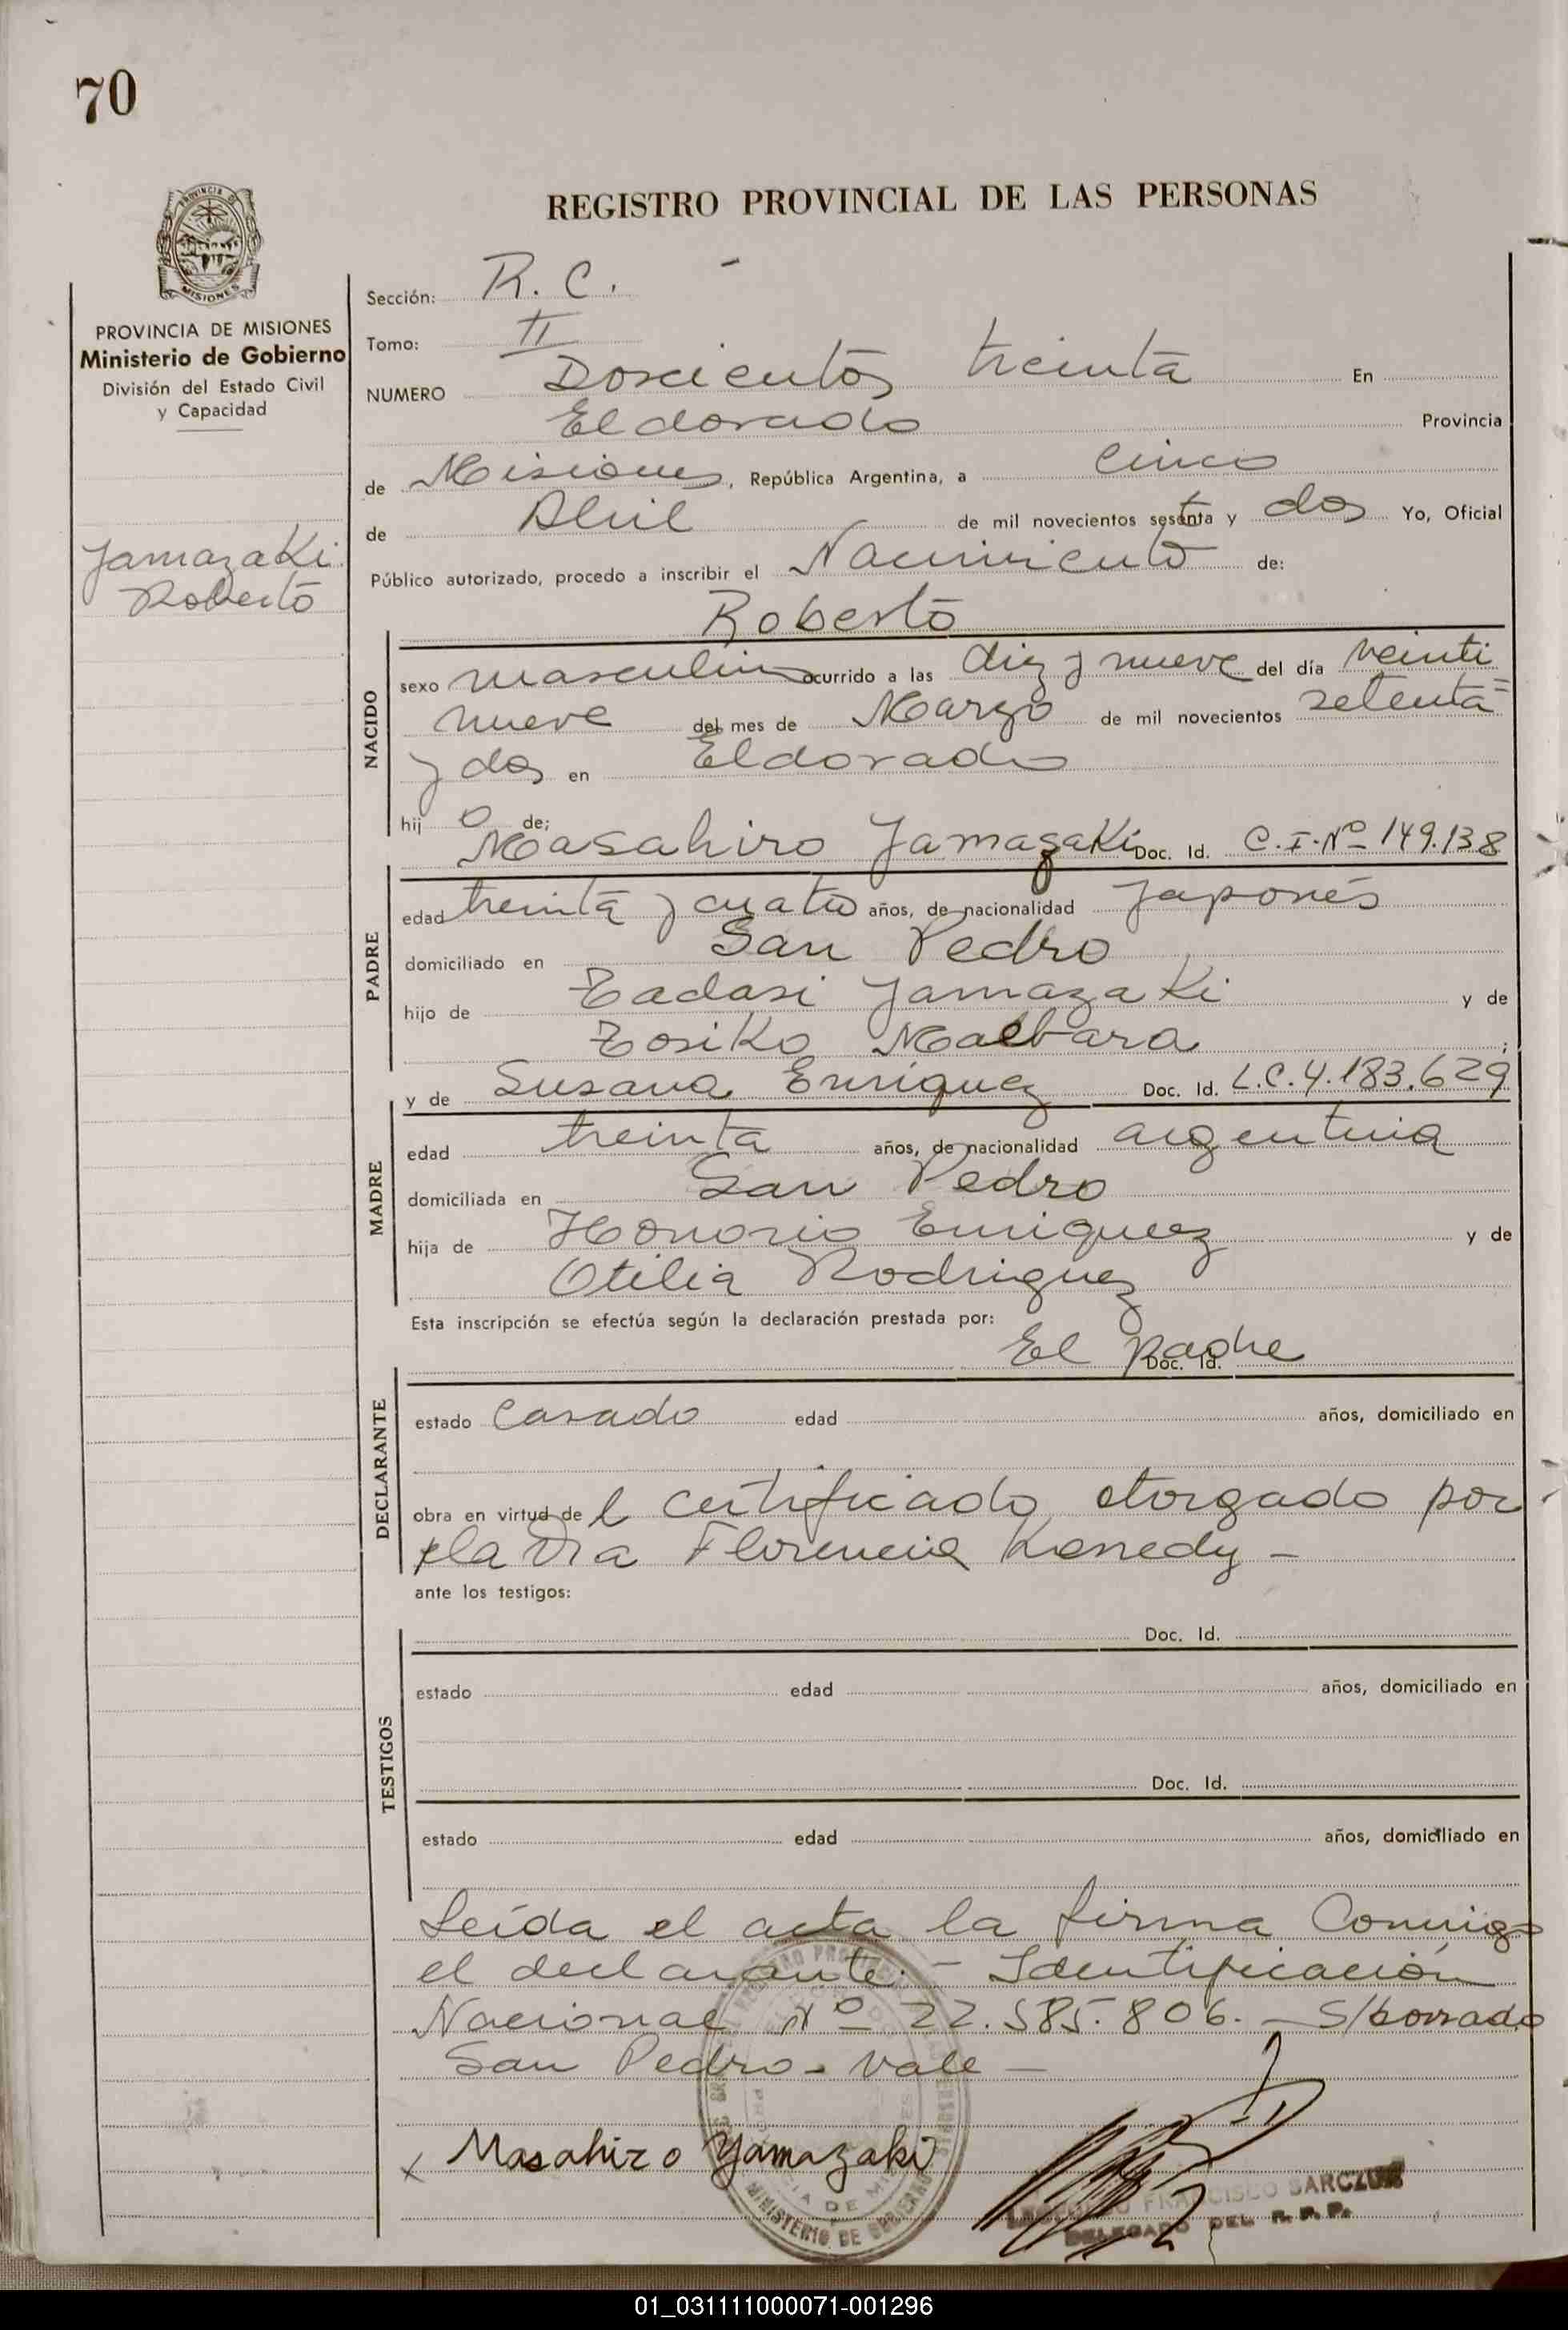 70
PROVINCIA
MISIONES
PROVINCIA DE MISIONES
Ministerio de Gobierno
División del Estado Civil
y Capacidad
Yamazaki
Roberto
REGISTRO PROVINCIAL DE LAS PERSONAS
Sección: R. C. -
Tomo: II
NUMERO Doscientos treinta En
Eldorado Provincia
de Misiones, República Argentina, a Cinco
de Abril de mil novecientos setenta y dos Yo, Oficial
Público autorizado, procedo a inscribir el Nacimiento de:
Roberto
NACIDO
sexo masculino ocurrido a las diez y nueve del día veinti
nueve del mes de Marzo de mil novecientos setenta=
y dos en Eldorado
hij o de;
Masahiro Yamazaki Doc. Id. C.I.Nº 149.138
PADRE
edad treinta y cuatro años, de nacionalidad Japonés
domiciliado en San Pedro
hijo de Tadasi Yamazaki y de
Tosiko Maebara;
y de Susana Enriquez Doc. Id. L.C.4.183.629
MADRE
edad treinta años, de nacionalidad argentina
domiciliada en San Pedro
hija de Honorio Enriquez y de
Otilia Rodriguez
Esta inscripción se efectúa según la declaración prestada por:
El padre Doc. Id.
DECLARANTE
estado Casado edad años, domiciliado en
obra en virtud de l certificado otorgado por
la Dra Florencia Kenedy -
ante los testigos:
Doc. Id.
TESTIGOS
estado edad años, domiciliado en
Doc. Id.
estado edad años, domiciliado en
Leída el acta la firma Conmigo
el declarante. - Identificación
Nacional Nº 22.585.806. - S/borrado
San Pedro - Vale -
x Masahiro Yamazaki
MINISTERIO DE GOBIERNO
FRANCISCO SARCZUK
DELEGADO DEL R. P. P.
01_031111000071-001296